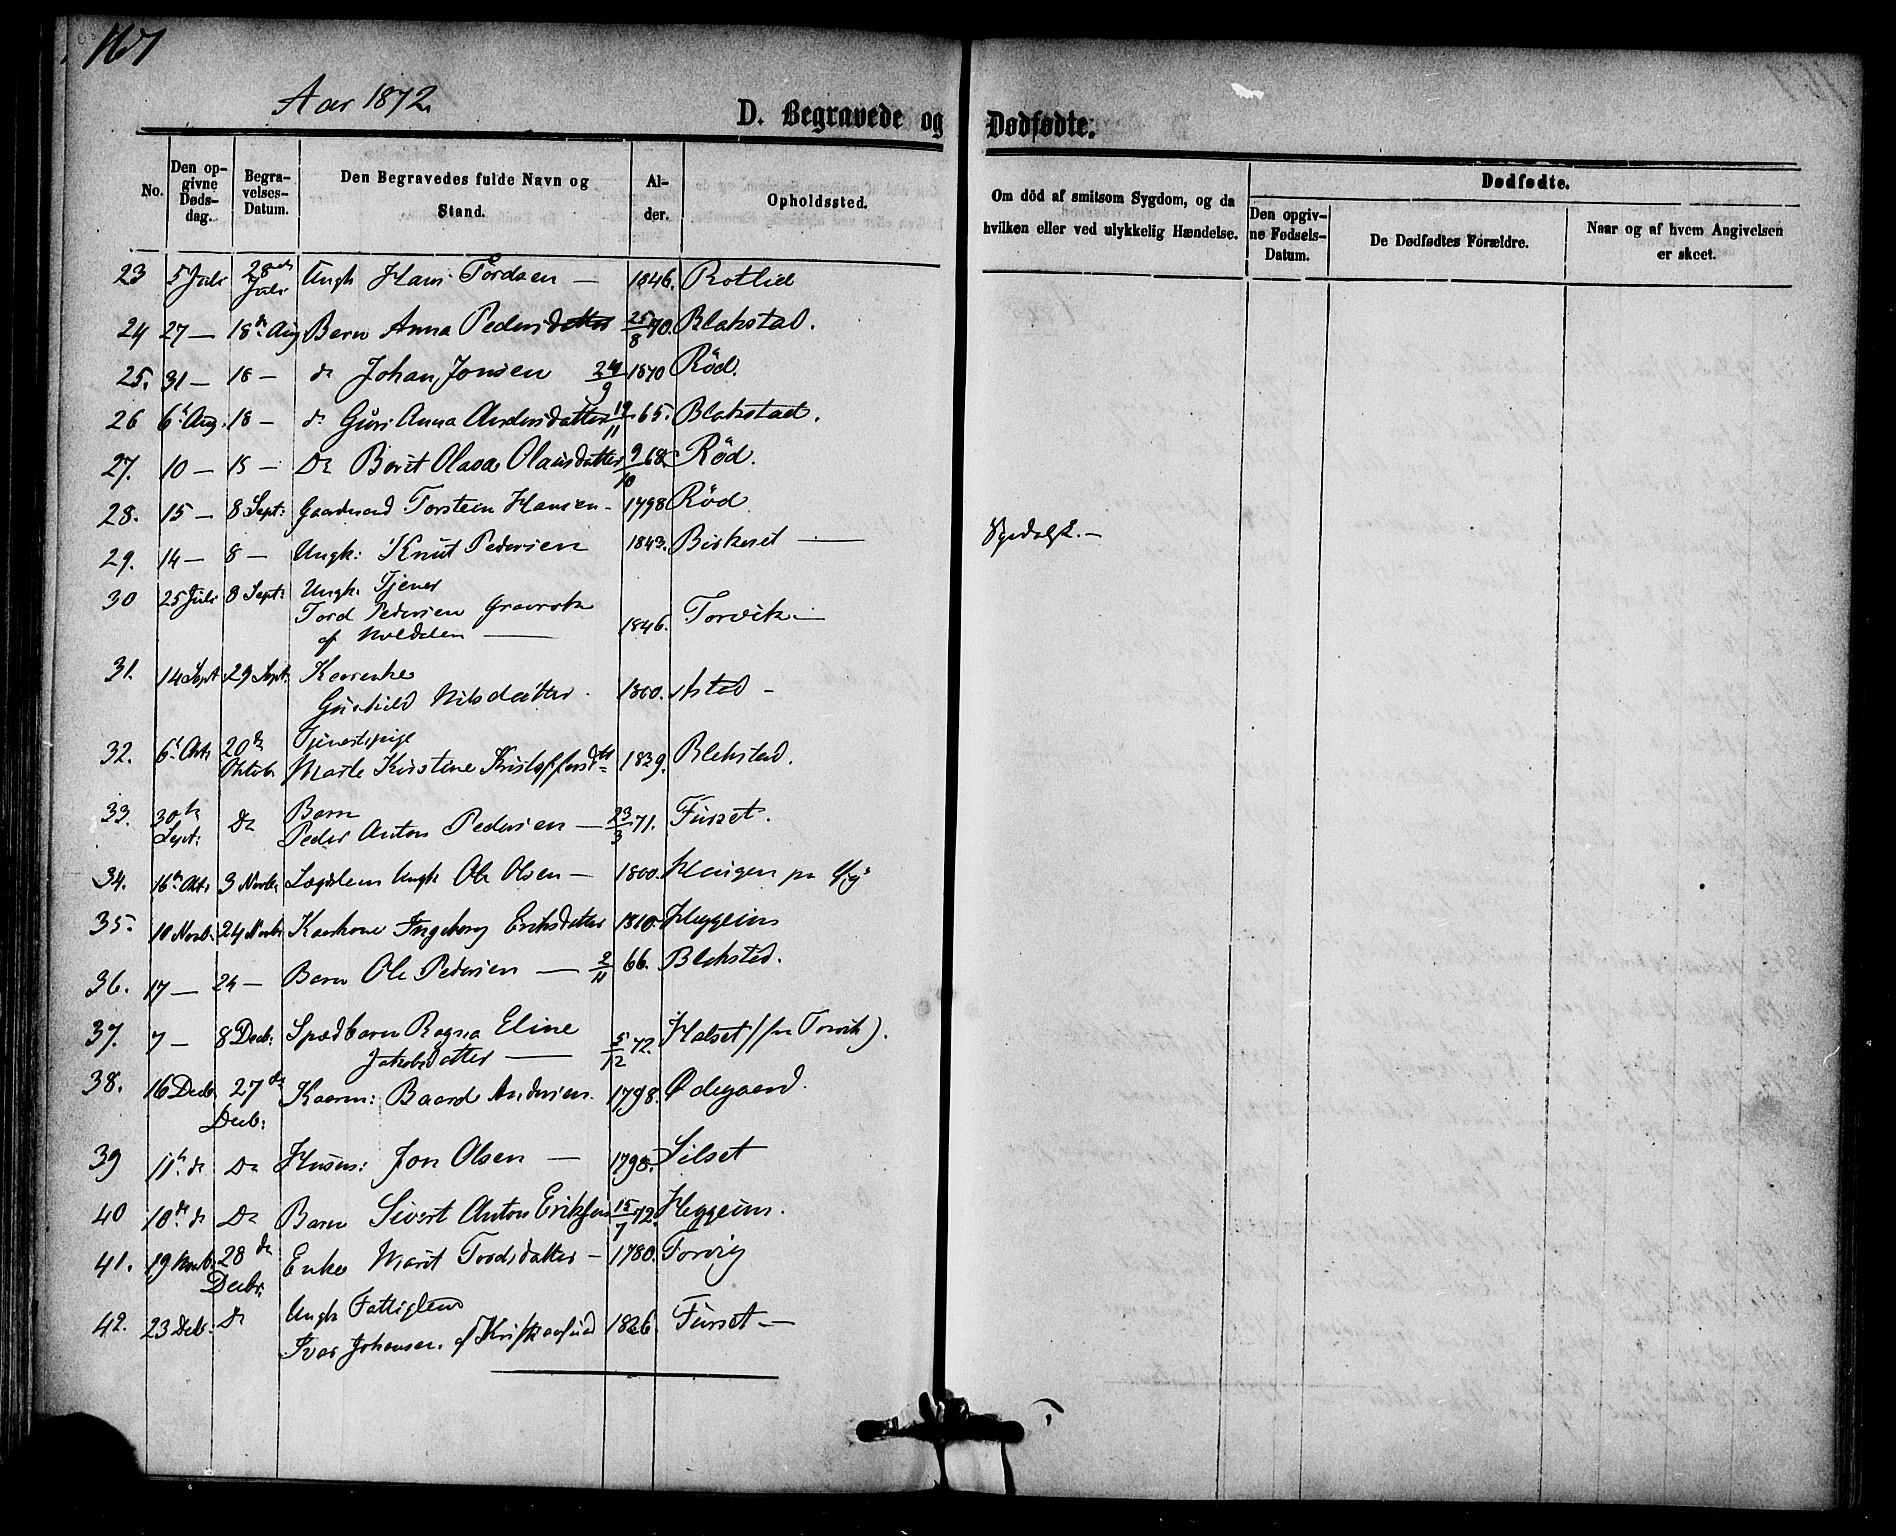 167
Aar 1872.
D. Begravede og Dødfødte.
No. | Den opgivne Dødsdag. | Begravelses-Datum. | Den Begravedes fulde Navn og Stand. | Alder. | Opholdssted. | Om död af smitsom Sygdom, og da hvilken eller ved ulykkelig Hændelse. | Dødfødte. | Den opgivne Fødsels-Datum. | De Dødfødtes Forældre. | Naar og af hvem Angivelsen er skeet.
23 5 Juli 28 Juli Ungk Hans Tordsen — 1846. Rotlid
24 27 — 18de Aug Barn Anna Pedersdatter 25/8 70. Blakstad.
25. 31 — 18 — do Johan Jonsen 24/9 1870 Röd.
26 6t Aug. 18 — do Guri Anna Andersdatter 19/11 65. Blakstad.
27. 10 — 18 — Do Berit Olava Olausdatter 9/10 68. Röd.
28. 15 — 8 Sept: Gaardmand Torsteen Hansen - 1798 Röd
29. 14 — 8 — Ungk: Knut Pedersen 1843. Birkeset —
30 25 Juli 8 Sept: Ungk. Tjener
Tord Pedersen
af — 1846. Torvik —
31. 14 Sept 29 Sept: Kaarenke
Gunhild Nilsdatter. 1800. Astad -
32. 6t Okt: 20de Oktob. Tjenestepige
Marte Kirstine 1839. Blakstad.
33. 30te Sept: Do Barn
Peder Anton Pedersen — 23/3 71. Furset.
34. 16de Okt: 3 Novb. Lægdslem Ungk Ole Olsen — 1800.
35. 10 Novb. 24 Novb Kaarkone Ingeborg Eriksdatter 1810. Heggeim
36. 17 — 24 — Barn Ole Pedersen — 2/11 66. Blakstad.
37. 7 — 8 Decb: Spædbarn Ragna Eline
Jakobsdatter — 5/12 72. Halset (fra Torvik).
38. 16 Decb. 27de Decb: Kaarm: Baard Andersen. 1798. Ødegaard.
39 11te do Do Husm: Jon Olsen — 1798. Silset
40 10de do Do Barn Sivert Anton Eriksen 15/7 72. Heggeim.
41. 19 Novb. 28de Decbr: Enke Marit Tordsdatter — 1780. Torvig
42. 23 Decb. do Ungk Fattiglem
Ivar Johansen. af Kristiansund 1826. Furset —